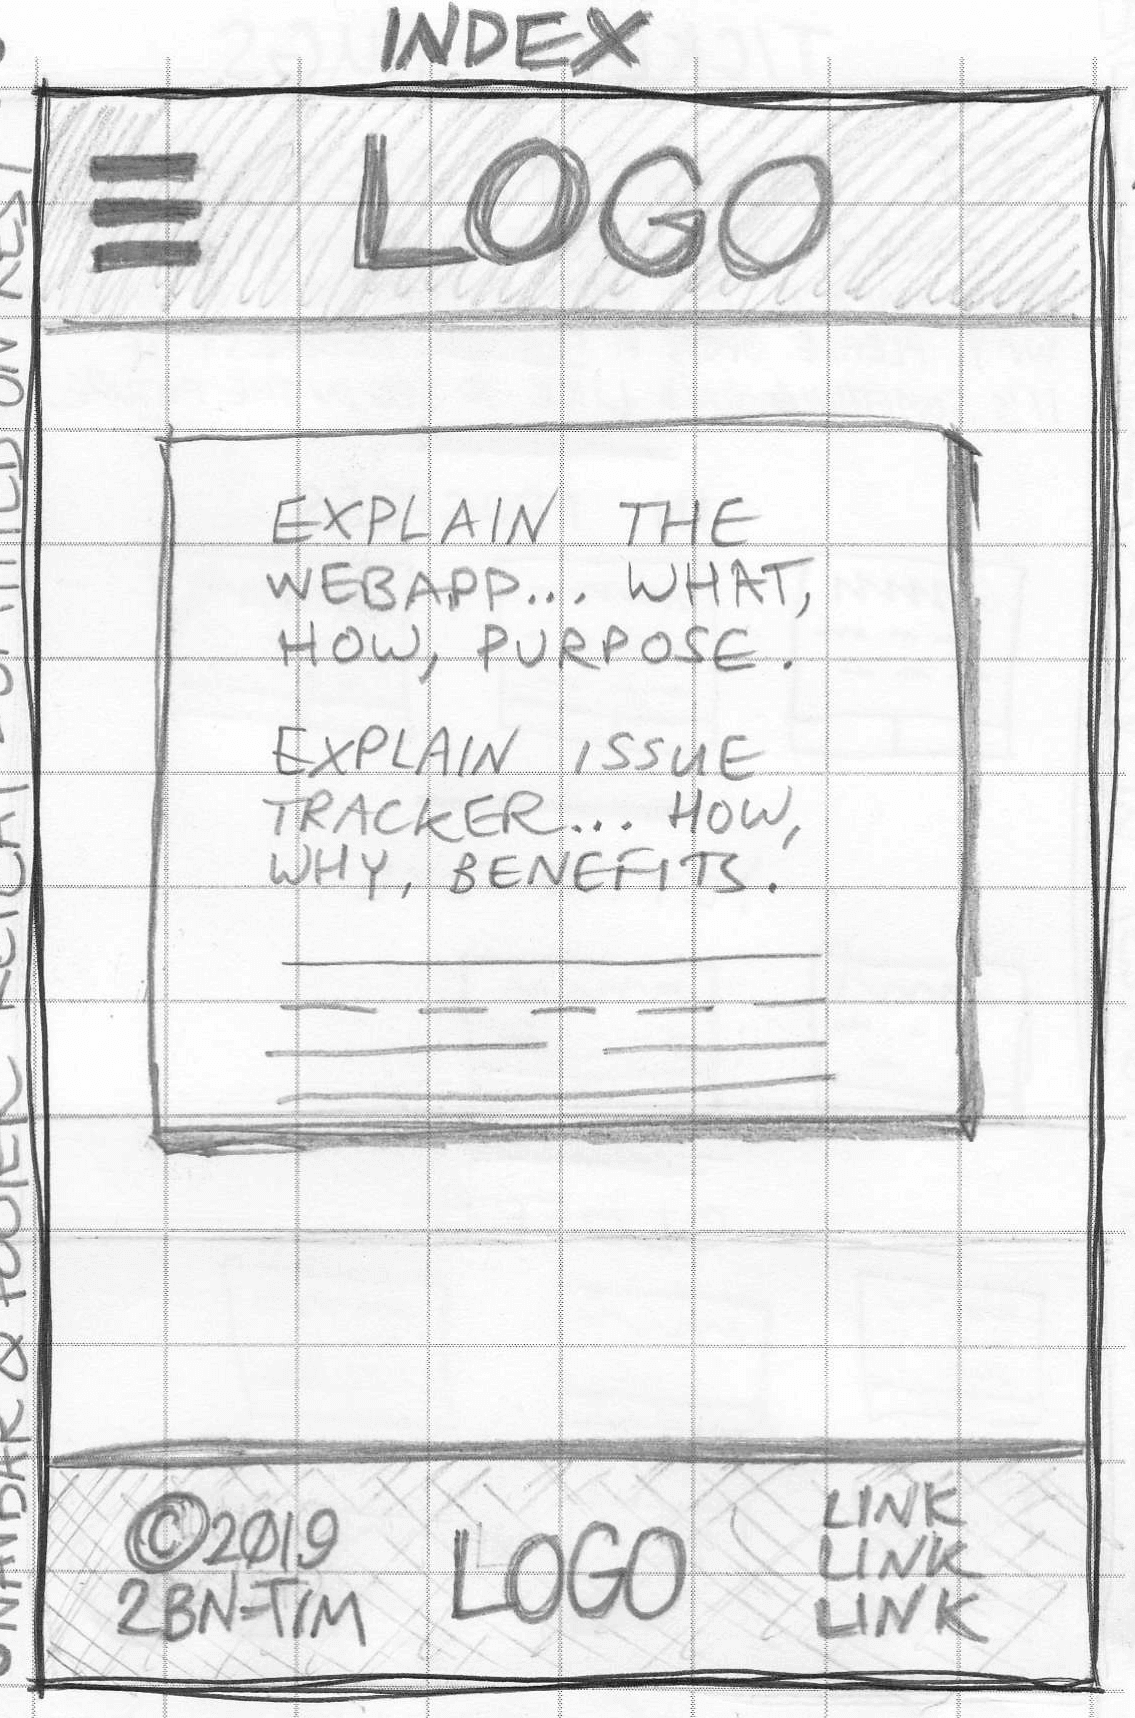 INDEX
LOGO
EXPLAIN THE
WEBAPP... WHAT,
HOW, PURPOSE.
EXPLAIN ISSUE
TRACKER... HOW,
WHY, BENEFITS.
©2019
2BN-TIM
LOGO
LINK
LINK
LINK
& FOOTER ON